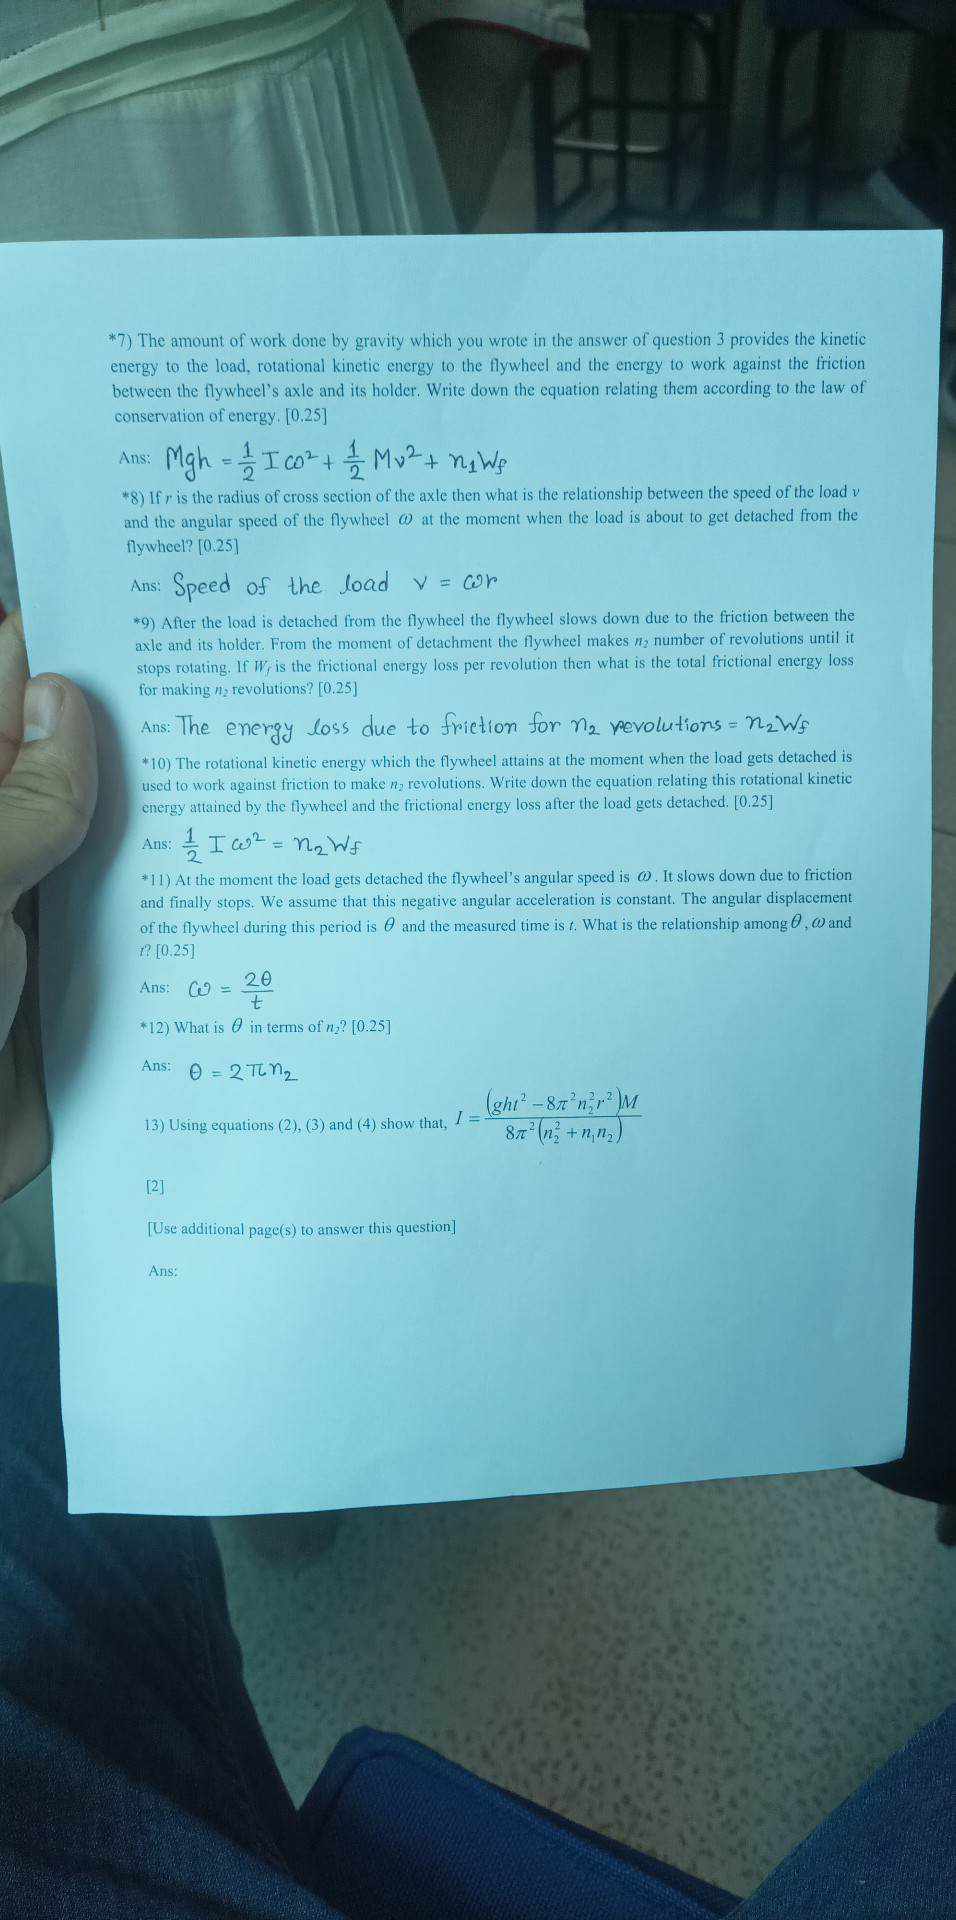 *7) The amount of work done by gravity which you wrote in the answer of question 3 provides the kinetic
energy to the load, rotational kinetic energy to the flywheel and the energy to work against the friction
between the flywheel's axle and its holder. Write down the equation relating them according to the law of
conservation of energy. [0.25]
Ans: Mgh = 1/2 Iω² + 1/2 Mv² + n₁Wf
*8) If r is the radius of cross section of the axle then what is the relationship between the speed of the load v
and the angular speed of the flywheel ω at the moment when the load is about to get detached from the
flywheel? [0.25]
Ans: Speed of the load v = ωr
*9) After the load is detached from the flywheel the flywheel slows down due to the friction between the
axle and its holder. From the moment of detachment the flywheel makes n₂ number of revolutions until it
stops rotating. If Wf is the frictional energy loss per revolution then what is the total frictional energy loss
for making n₂ revolutions? [0.25]
Ans: The energy loss due to friction for n₂ revolutions = n₂Wf
*10) The rotational kinetic energy which the flywheel attains at the moment when the load gets detached is
used to work against friction to make n₂ revolutions. Write down the equation relating this rotational kinetic
energy attained by the flywheel and the frictional energy loss after the load gets detached. [0.25]
Ans: 1/2 Iω² = n₂Wf
*11) At the moment the load gets detached the flywheel's angular speed is ω. It slows down due to friction
and finally stops. We assume that this negative angular acceleration is constant. The angular displacement
of the flywheel during this period is θ and the measured time is t. What is the relationship among θ, ω and
t? [0.25]
Ans: ω = 2θ/t
*12) What is θ in terms of n₂? [0.25]
Ans: θ = 2πn₂
13) Using equations (2), (3) and (4) show that, I = (ght² − 8π²n₂²r²)M / 8π²(n₂² + n₁n₂)
[2]
[Use additional page(s) to answer this question]
Ans: